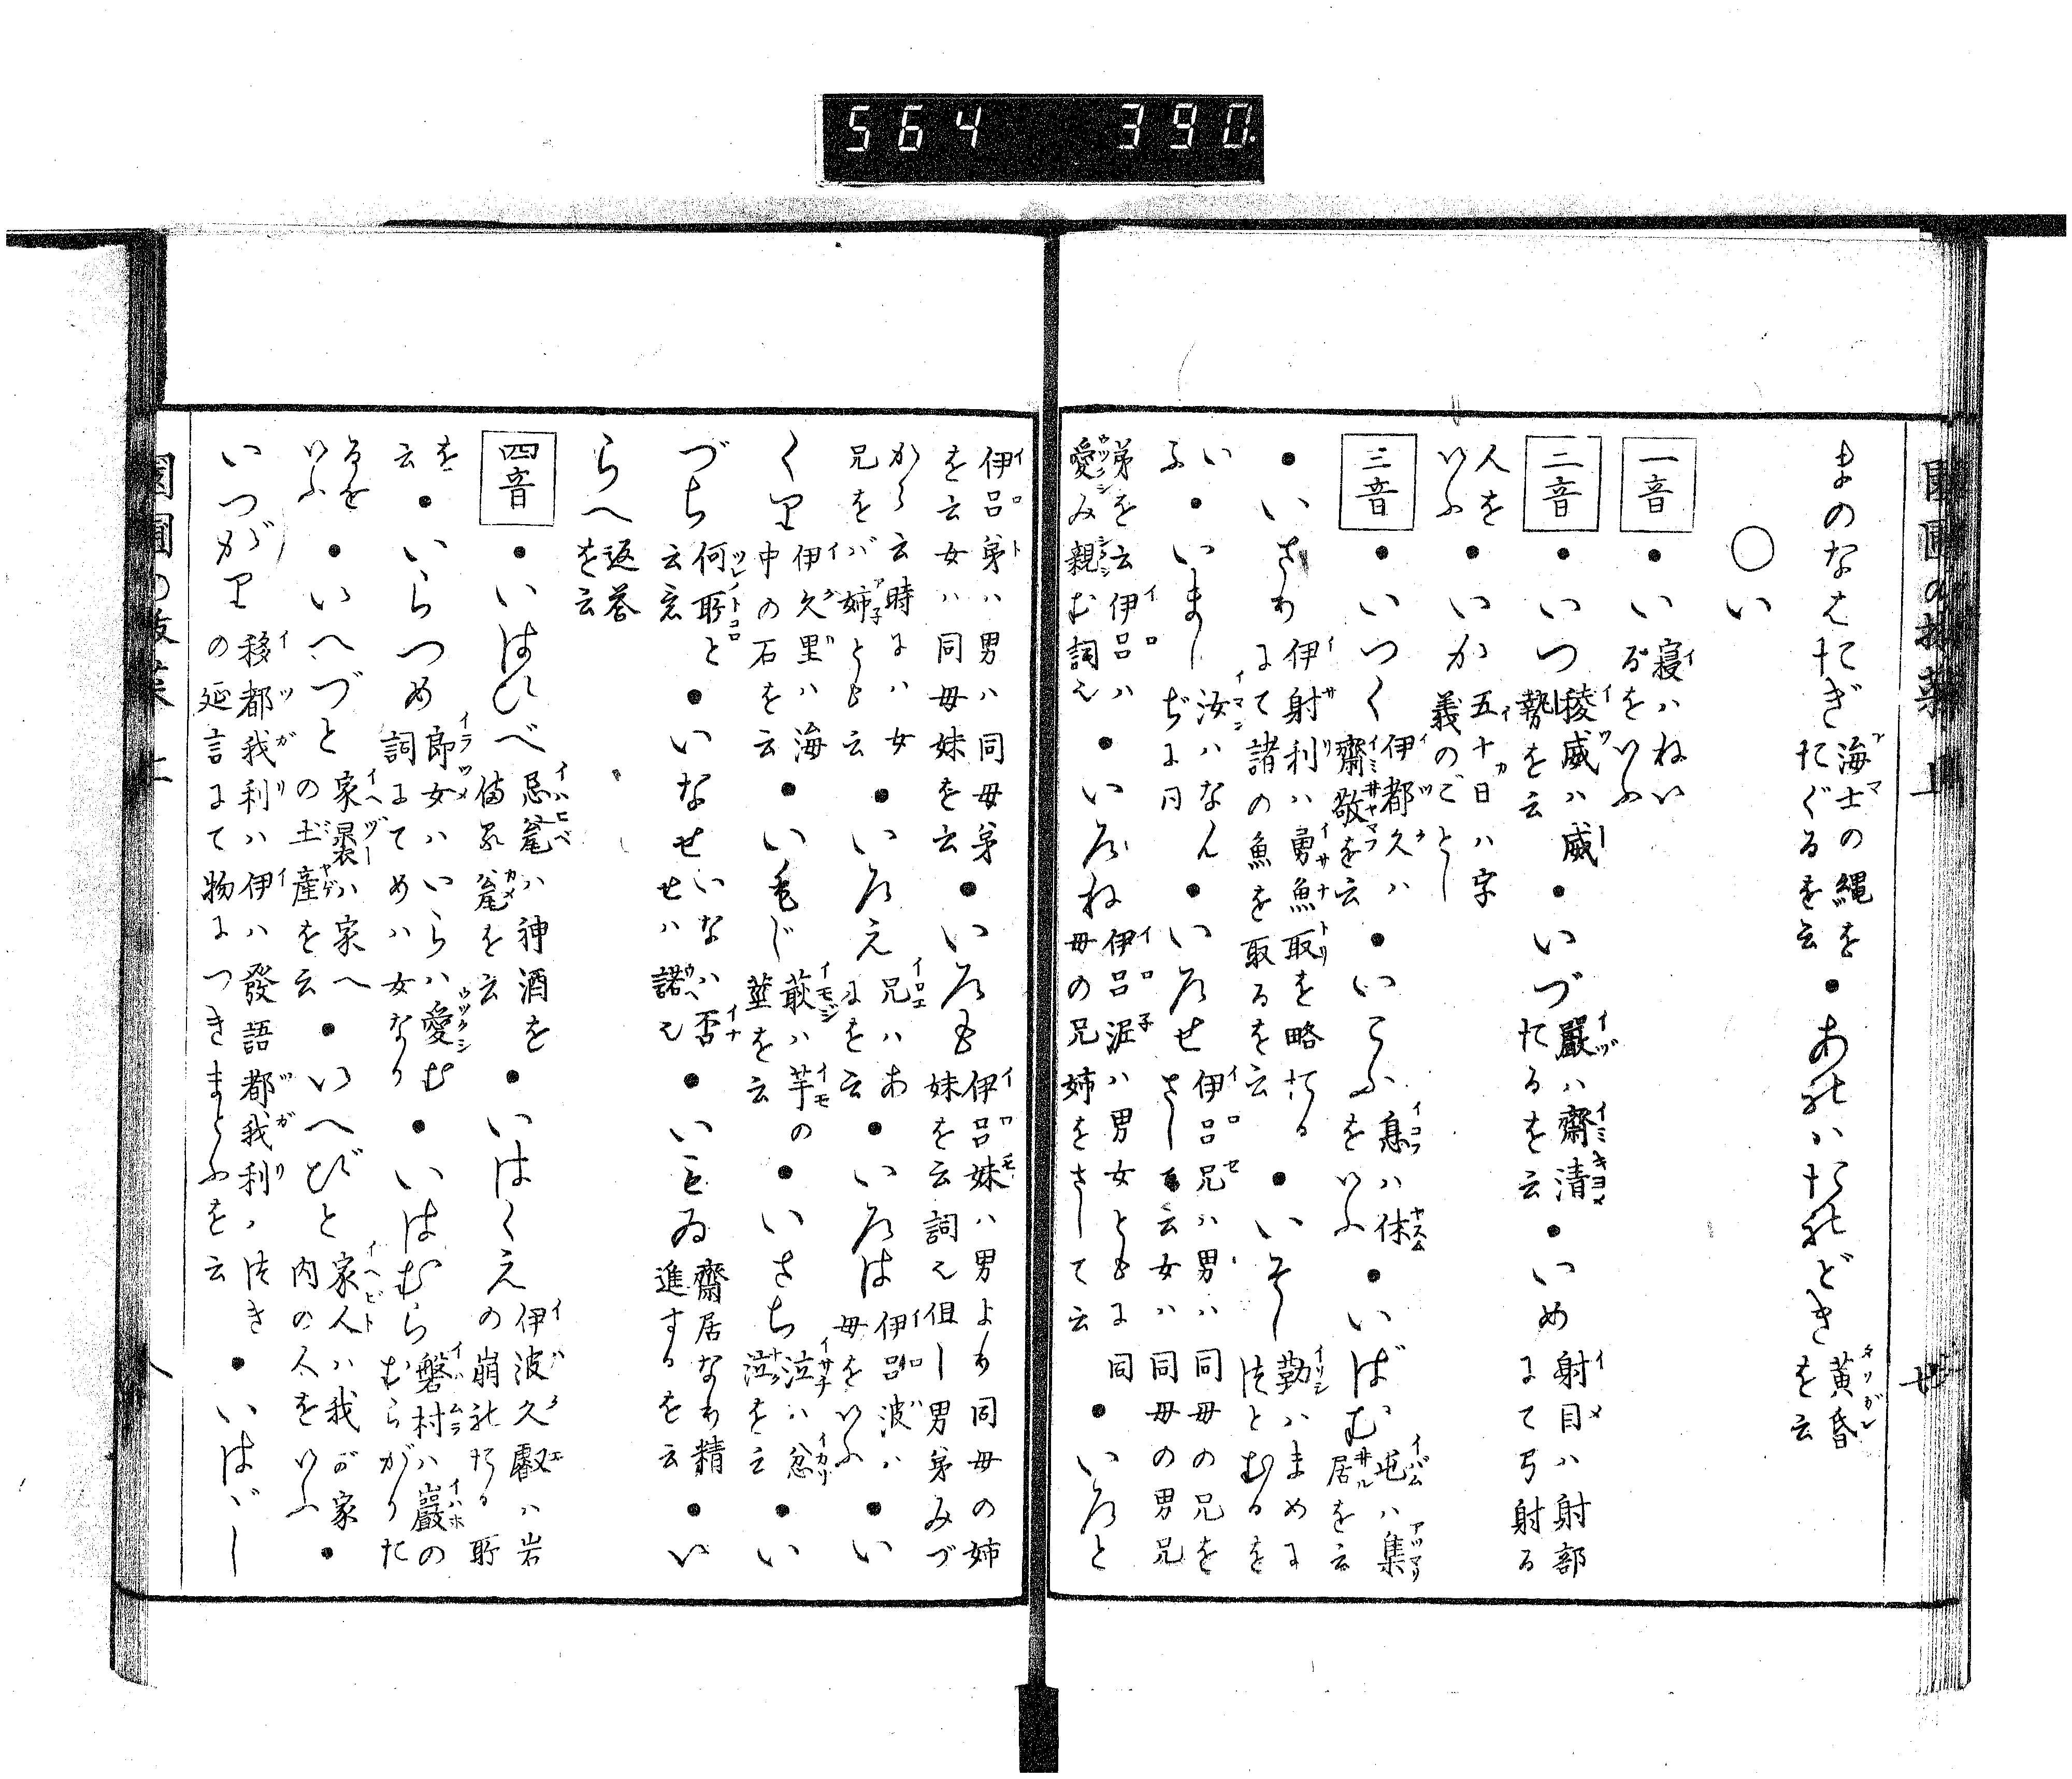 564 390.
まのなはたぎ 海士の縄をたぐるを云 ●あれハたれどき 黄昏を云
○い
一音 ●い 寝ハねいるをいふ
二音 ●いつ 稜威ハ威勢を云 ●いづ 嚴ハ齋清たるを云 ●いめ 射目ハ射部にて弓射る
人をいふ ●いか 五十日ハ字義のごとし
三音 ●いつく 伊都久ハ齋敬を云 ●いこふ 息ハ休をいふ ●いばむ 屯ハ集居を云
●いさり 伊射利ハ勇魚取を略たるにて諸の魚を取るを云 ●いそし 勤ハまめにつとむるを
いふ ●いまし 汝ハなんぢに同 ●いろせ 伊呂兄ハ男ハ同母の兄をさし云女ハ同母の男兄
弟を云伊呂ハ愛み親む詞也 ●いろね 伊呂泥ハ男女ともに同母の兄姉をさして云 ●いろと
伊呂弟ハ男ハ同母弟を云女ハ同母妹を云 ●いろも 伊呂妹ハ男より同母の姉妹を云詞也但し男弟みづ
から云時にハ女兄をバ姉とも云 ●いろえ 兄ハあにを云 ●いろは 伊呂波ハ母をいふ ●い
くり 伊久里ハ海中の石を云 ●いもじ 蔌ハ芋の莖を云 ●いさち 泣ハ忿泣を云 ●い
づち 何所と云意 ●いなせ いなハ否せハ諾也 ●いもゐ 齋居なり精進するを云 ●い
らへ 返答を云
四音 ●いはひべ 忌瓮ハ神酒を備る瓮を云 ●いはくえ 伊波久叡ハ岩の崩れたる所
を云 ●いらつめ 郎女ハいらハ愛む詞にてめハ女なり ●いはむら 磐村ハ巖のむらがりた
るをいふ ●いへづと 家裹ハ家への土産を云 ●いへびと 家人ハ我が家内の人をいふ ●
いつがり 移都我利ハ伊ハ發語都我利ハつきの延言にて物につきまとふを云 ●いはゞし